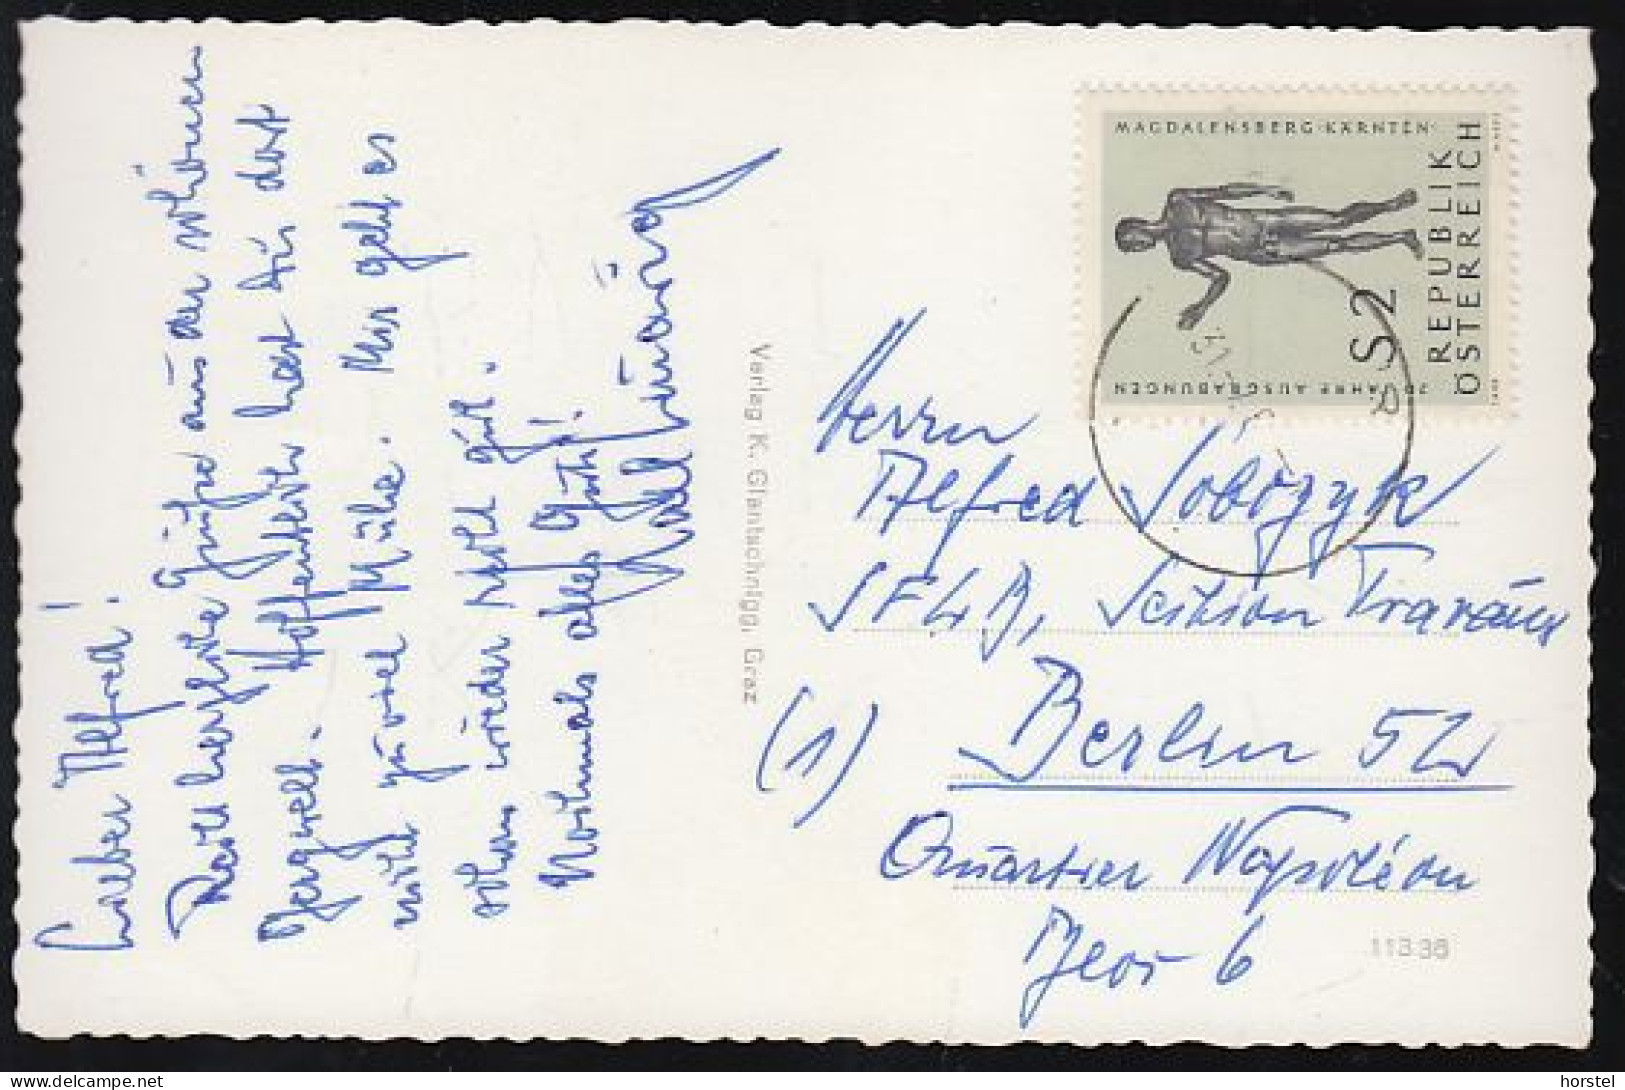 Lieber Alfred!
Recht herzliche Grüße aus der schönen
Bergwelt. Hoffentlich hast Du dort
nicht zuviel Mühe. Mir geht es
schon wieder recht gut.
Nochmals alles Gute!
MAGDALENSBERG·KÄRNTEN·
20 JAHRE AUSGRABUNGEN
S2
REPUBLIK
ÖSTERREICH
Verlag K. Glantschnigg, Graz
Herrn
Alfred Sobczyk
SFLB, Section Travaux
(1) Berlin 52
Quartier Napoléon
6
11336
horstel
delcampe.net